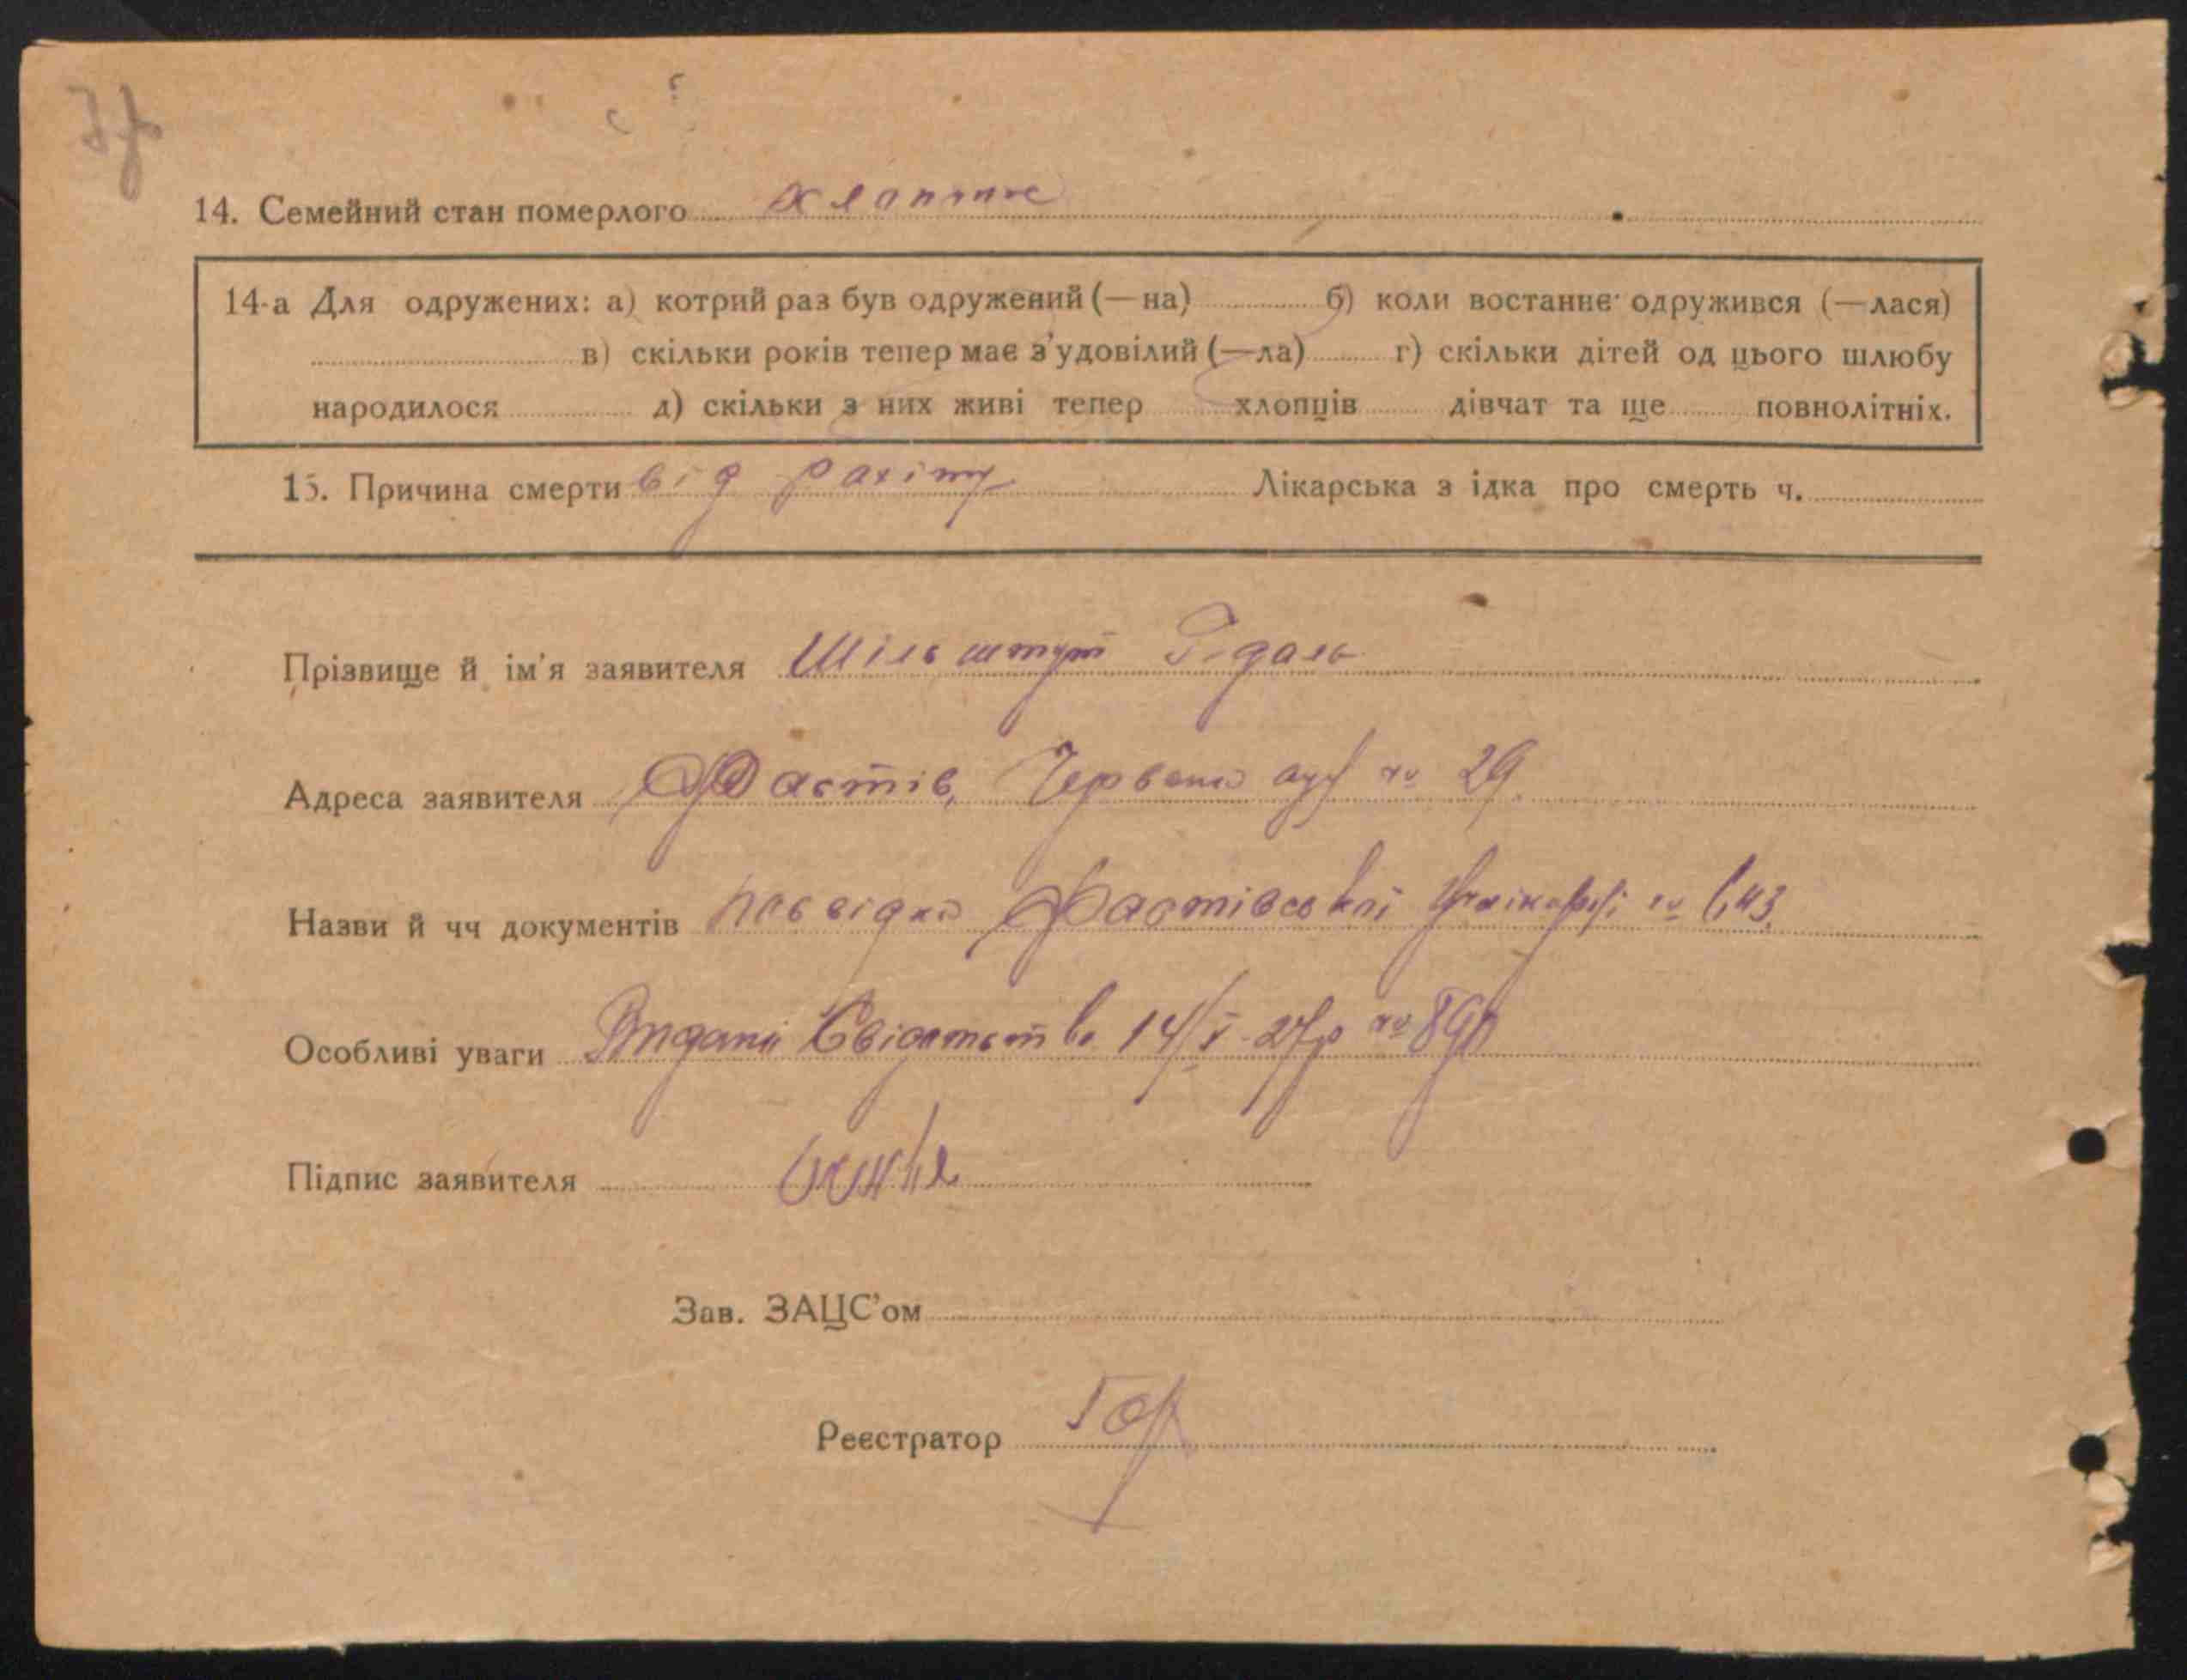 14. Семейний стан померлого хлопчик
14-а Для одружених: а) котрий раз був одружений (—на) б) коли востаннє одружився (—лася)
в) скільки років тепер має з'удовілий (—ла) г) скільки дітей од цього шлюбу
народилося д) скільки з них живі тепер хлопців дівчат та ще повнолітніх.
15. Причина смерти від рахіту Лікарська з ідка про смерть ч.
Прізвище й ім'я заявителя Шільштут Гідаль
Адреса заявителя Фастів, Червона вул № 29.
Назви й чч документів посвідка Фастівської № 643.
Особливі уваги Видані Свідотство 14/X-27р № 890
Підпис заявителя
Зав. ЗАЦС'ом
Реєстратор Гор